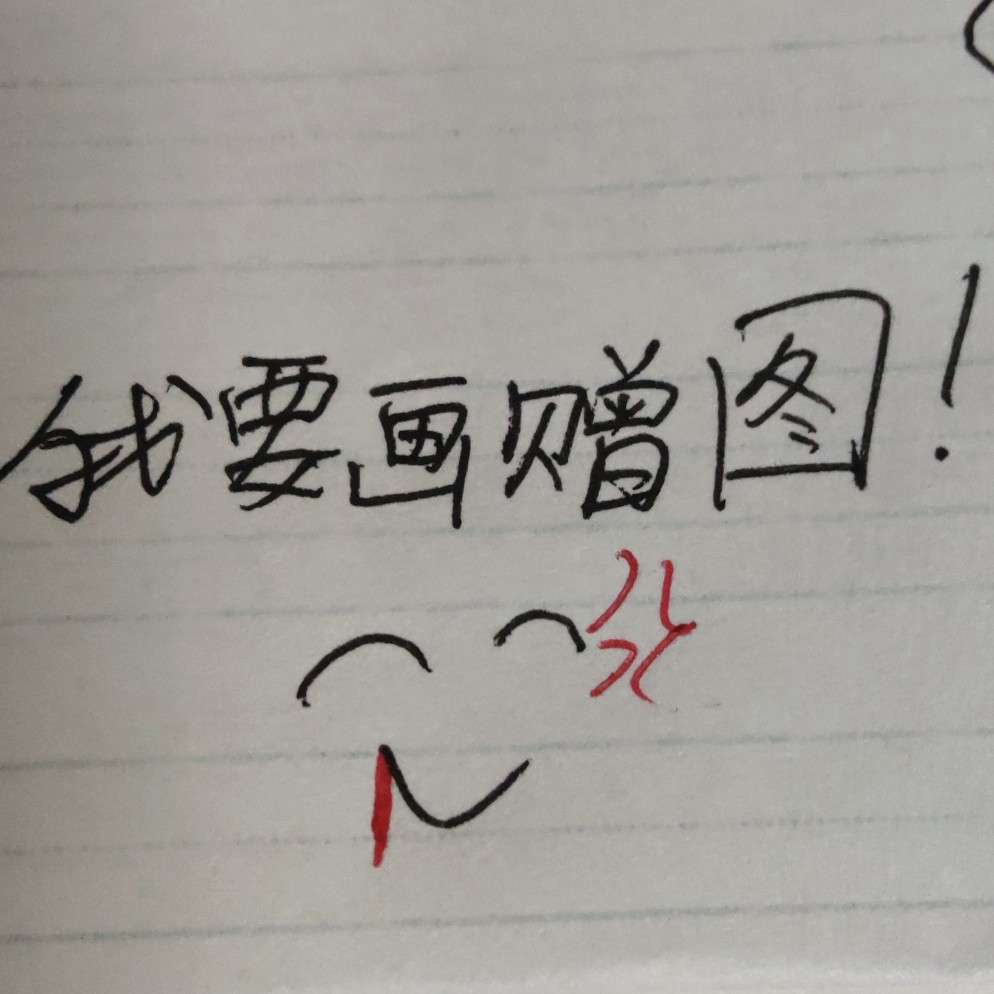 我要画赠图!